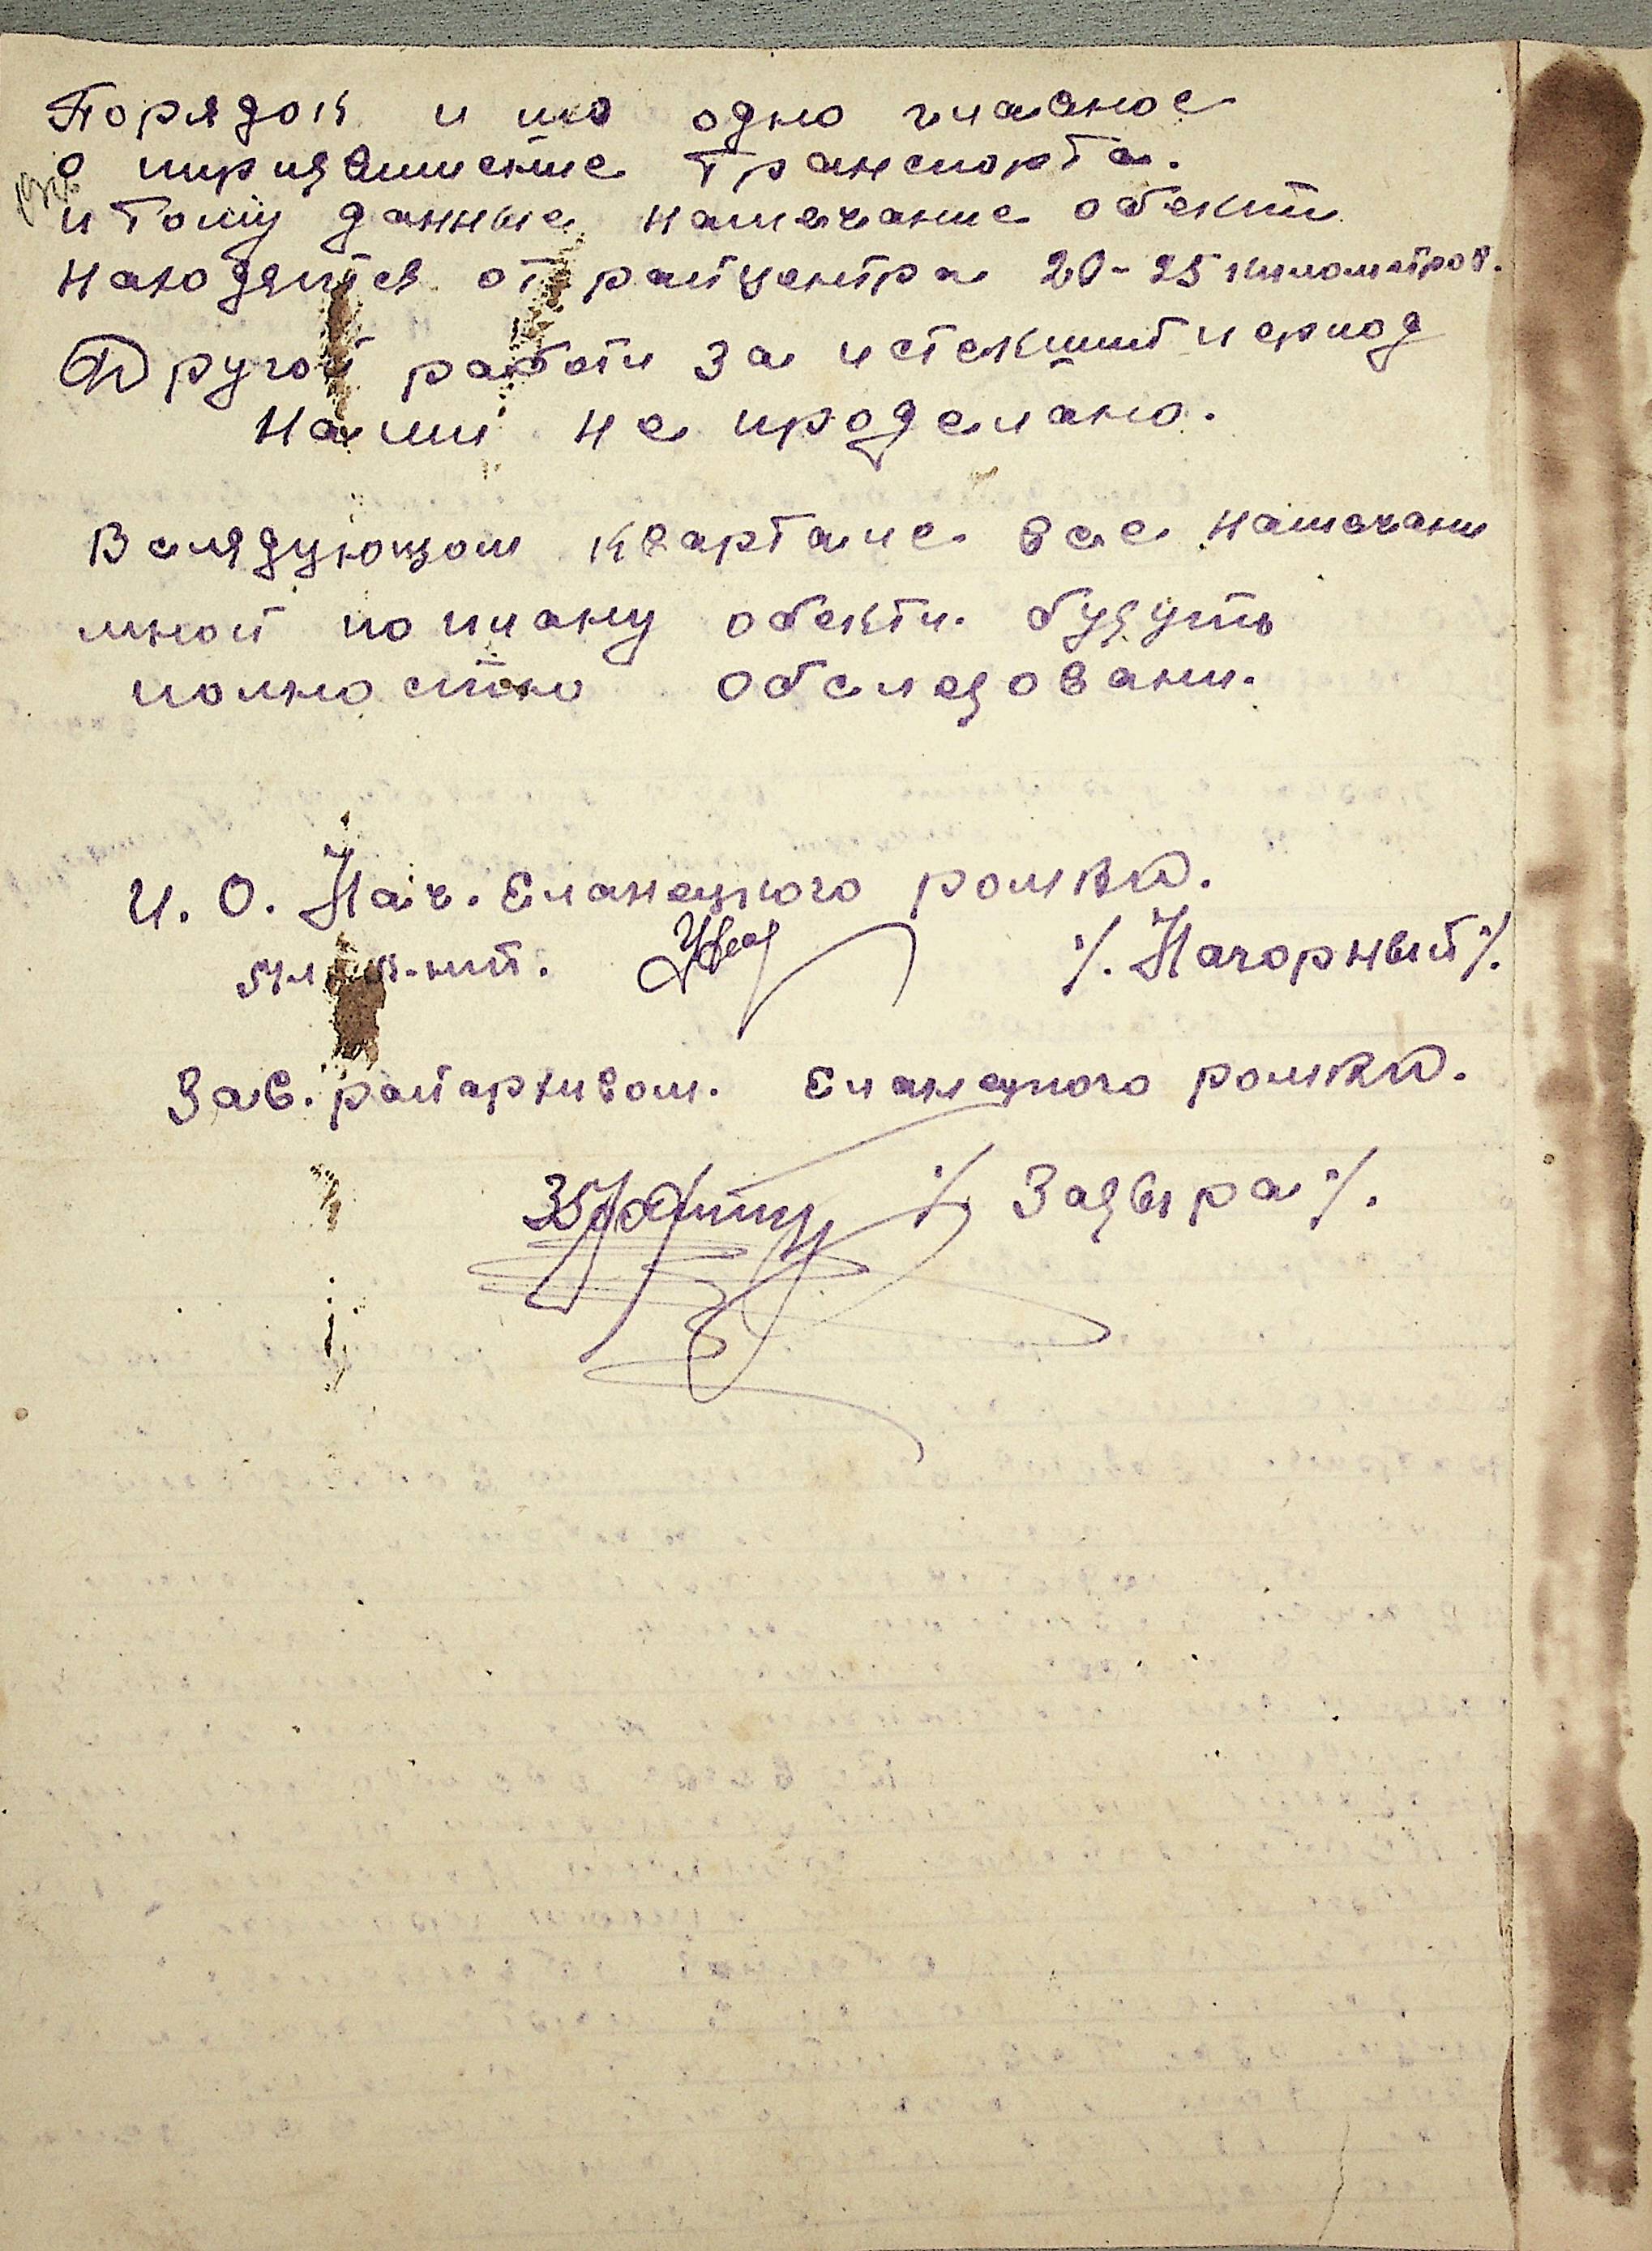 Порядок и що одно главное
о придвишение транспорта.
и тому данные намечание обекти
находятся от райцентра 20-25 километров.
Другой работи за истекший период
Нами не проделано.
В слядующом квартале все намечани
мной по плану обекти будуть
полностю обследовани.
И. О. Нач. Еланецкого ромвд.
мл. л-нт. /. Нагорный /.
Зав. райархивом. Еланецкого ромвд.
/. Задыра /.